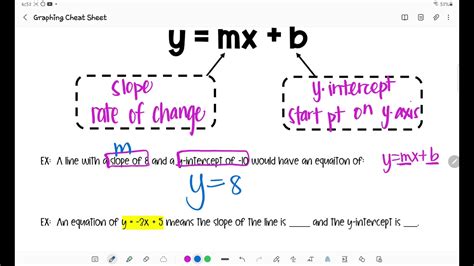 Graphing Cheat Sheet
y = mx + b
slope
rate of change
y-intercept
start pt on y-axis
m
EX: A line with a slope of 8 and a y-intercept of -10 would have an equaiton of:
y=mx+b
y=8
EX: An equation of y = -2x + 5 means the slope of the line is ____ and the y-intercept is ___.